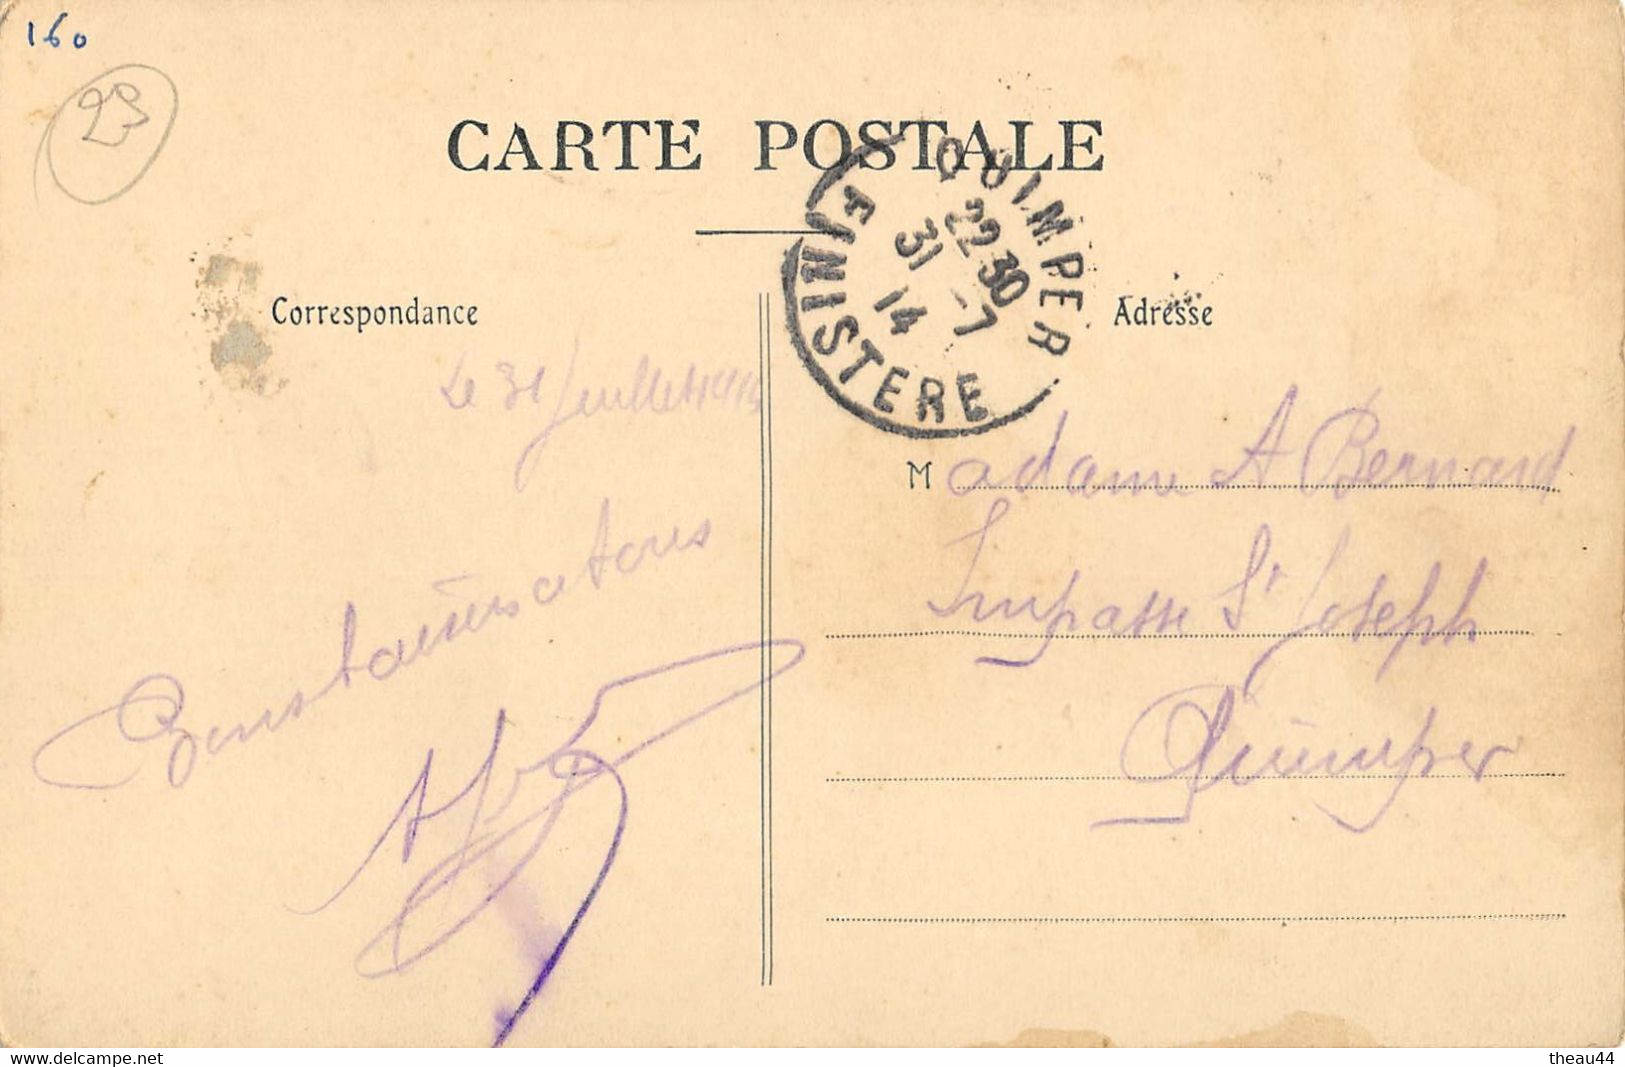 160
23
CARTE POSTALE
QUIMPER
22 30
31 - 7
14
FINISTERE
Correspondance
Adresse
Le 31 Juillet 1914
Madame A Bernard
Impasse St Joseph
Quimper
Bons baisers a tous
www.delcampe.net
theau44